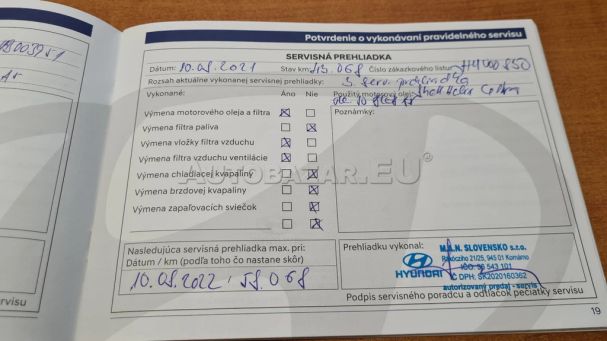 Potvrdenie o vykonávaní pravidelného servisu
SERVISNÁ PREHLIADKA
Dátum: 10.08.2021 Stav km: 43.068 Číslo zákazkového listu:
Rozsah aktuálne vykonanej servisnej prehliadky: 3 serv. prehliadka
Vykonané: Áno Nie Použitý motorový olej: Shell Helix
Výmena motorového oleja a filtra
Poznámky:
Výmena filtra paliva
Výmena vložky filtra vzduchu
Výmena filtra vzduchu ventilácie
Výmena chladiacej kvapaliny
Výmena brzdovej kvapaliny
Výmena zapaľovacích sviečok
AUTOBAZAR.EU
Nasledujúca servisná prehliadka max. pri:
Dátum / km (podľa toho čo nastane skôr)
10.08.2022 / 58.068
Prehliadku vykonal:
M.A.N. SLOVENSKO s.r.o.
Rákócziho 21/25, 945 01 Komárno
IČO: 36 543 101
HYUNDAI IČ DPH: SK2020160362
autorizovaný predaj - servis
Podpis servisného poradcu a odtlačok pečiatky servisu
19
ervisu